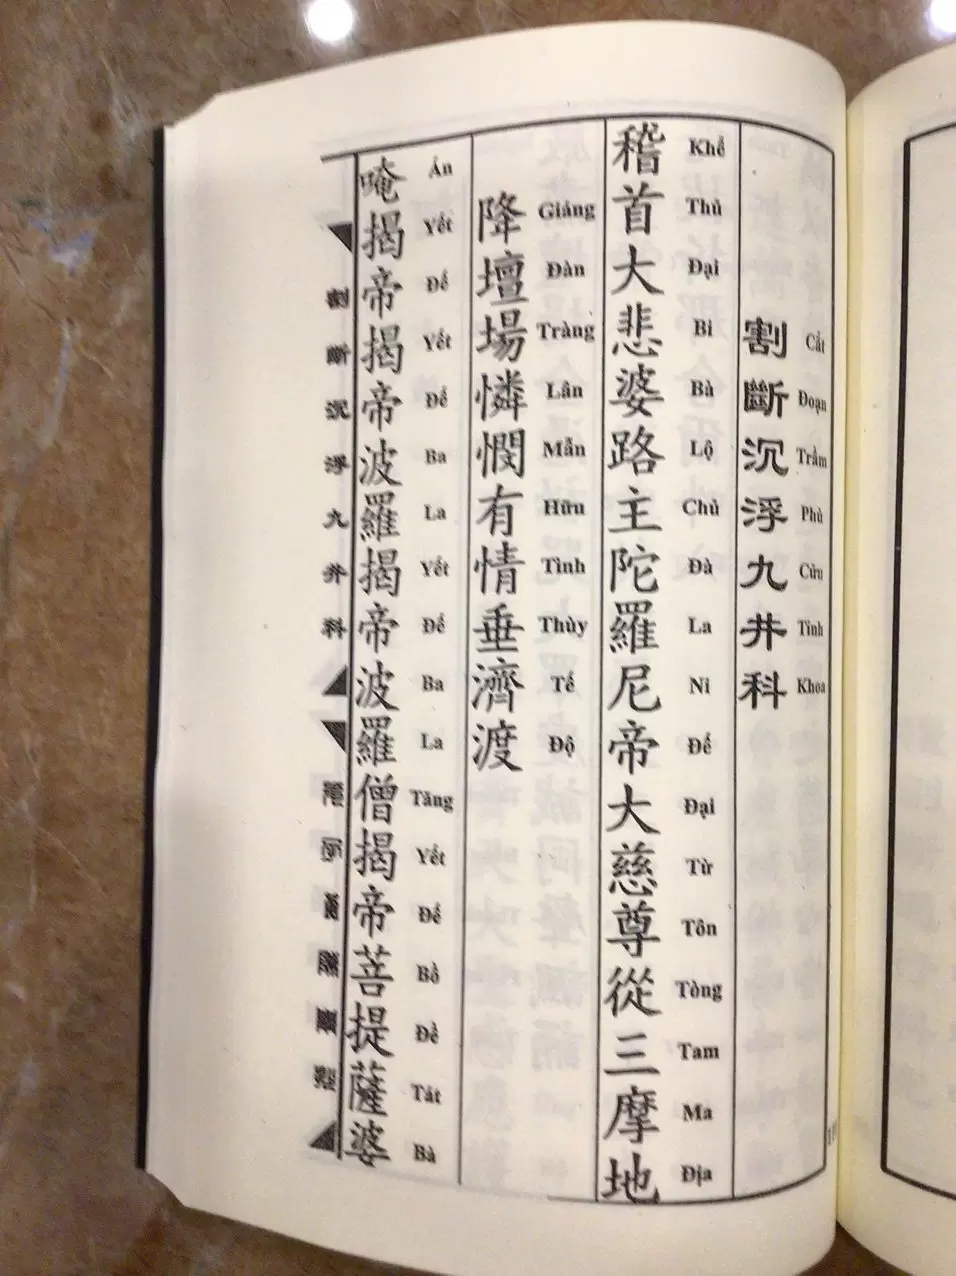 割斷沉浮九井科
Cắt Đoạn Trầm Phù Cửu Tỉnh Khoa
稽首大悲婆路主陀羅尼帝大慈尊從三摩地
Khể Thủ Đại Bi Bà Lộ Chủ Đà La Ni Đế Đại Từ Tôn Tòng Tam Ma Địa
降壇場憐憫有情垂濟渡
Giáng Đàn Tràng Lân Mẫn Hữu Tình Thùy Tế Độ
唵揭帝揭帝波羅揭帝波羅僧揭帝菩提薩婆
Án Yết Đế Yết Đế Ba La Yết Đế Ba La Tăng Yết Đế Bồ Đề Tát Bà
割斷沉浮九井科